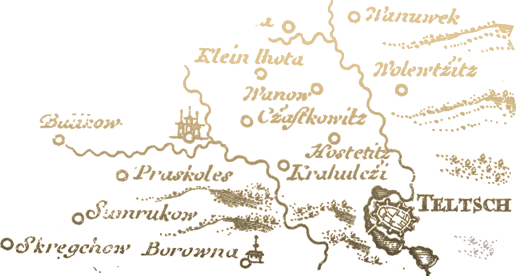 Wanuwek
Klein lhota
Wolewtžitz
Wanow
Cžastkowitz
Hostetitz
Praskoles
Krahulcži
TELTSCH
Sumrukow
Skręchow
Borowna